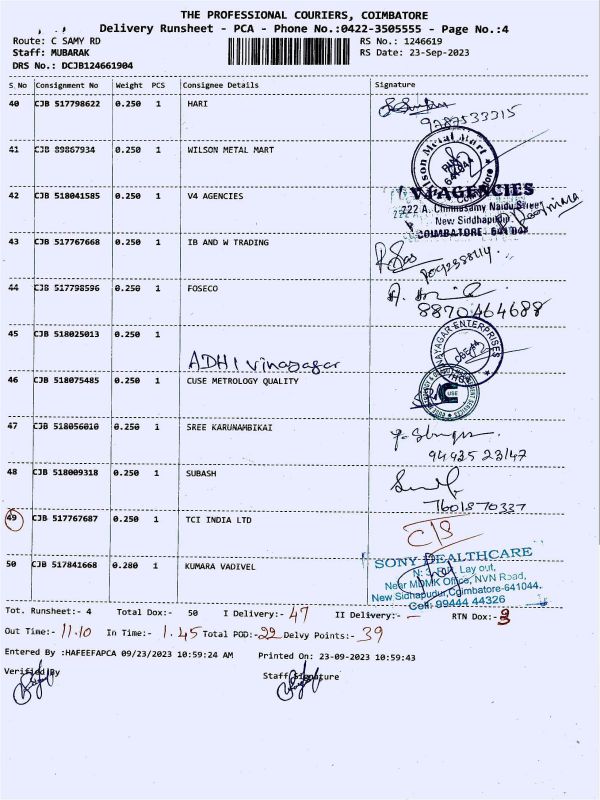 THE PROFESSIONAL COURIERS, COIMBATORE
Delivery Runsheet - PCA - Phone No.:0422-3505555 - Page No.:4
Route: C SAMY RD
RS No.: 1246619
Staff: MUBARAK
RS Date: 23-Sep-2023
DRS No.: DCJB124661904
S.No Consignment No Weight PCS Consignee Details Signature
40 CJB 517798622 0.250 1 HARI
9287533315
41 CJB 89867934 0.250 1 WILSON METAL MART
42 CJB 518041585 0.250 1 V4 AGENCIES
V4 AGENCIES
222 A, Chinnasamy Naidu Street
New Siddhapudur
COIMBATORE - 641 044
43 CJB 517767668 0.250 1 IB AND W TRADING
44 CJB 517798596 0.250 1 FOSECO
8870464688
45 CJB 518025013 0.250 1
ADHI vinayagar
NAYAGAR ENTERPRISES
46 CJB 518075485 0.250 1 CUSE METROLOGY QUALITY
CUSE
47 CJB 518056010 0.250 1 SREE KARUNAMBIKAI
94425 23147
48 CJB 518009318 0.250 1 SUBASH
7601870337
49 CJB 517767687 0.250 1 TCI INDIA LTD
C/S
50 CJB 517841668 0.280 1 KUMARA VADIVEL
SONY HEALTHCARE
Lay out,
Near MDMK Office, NVN Road,
New Sidhapudur, Coimbatore-641044.
Cell: 99444 44326
Tot. Runsheet:- 4 Total Dox:- 50 I Delivery:- 47 II Delivery:- — RTN Dox:- 3
Out Time:- 11.10 In Time:- 1.45 Total POD:- 22 Delvy Points:- 39
Entered By :HAFEEFAPCA 09/23/2023 10:59:24 AM Printed On: 23-09-2023 10:59:43
Verified By Staff Signature